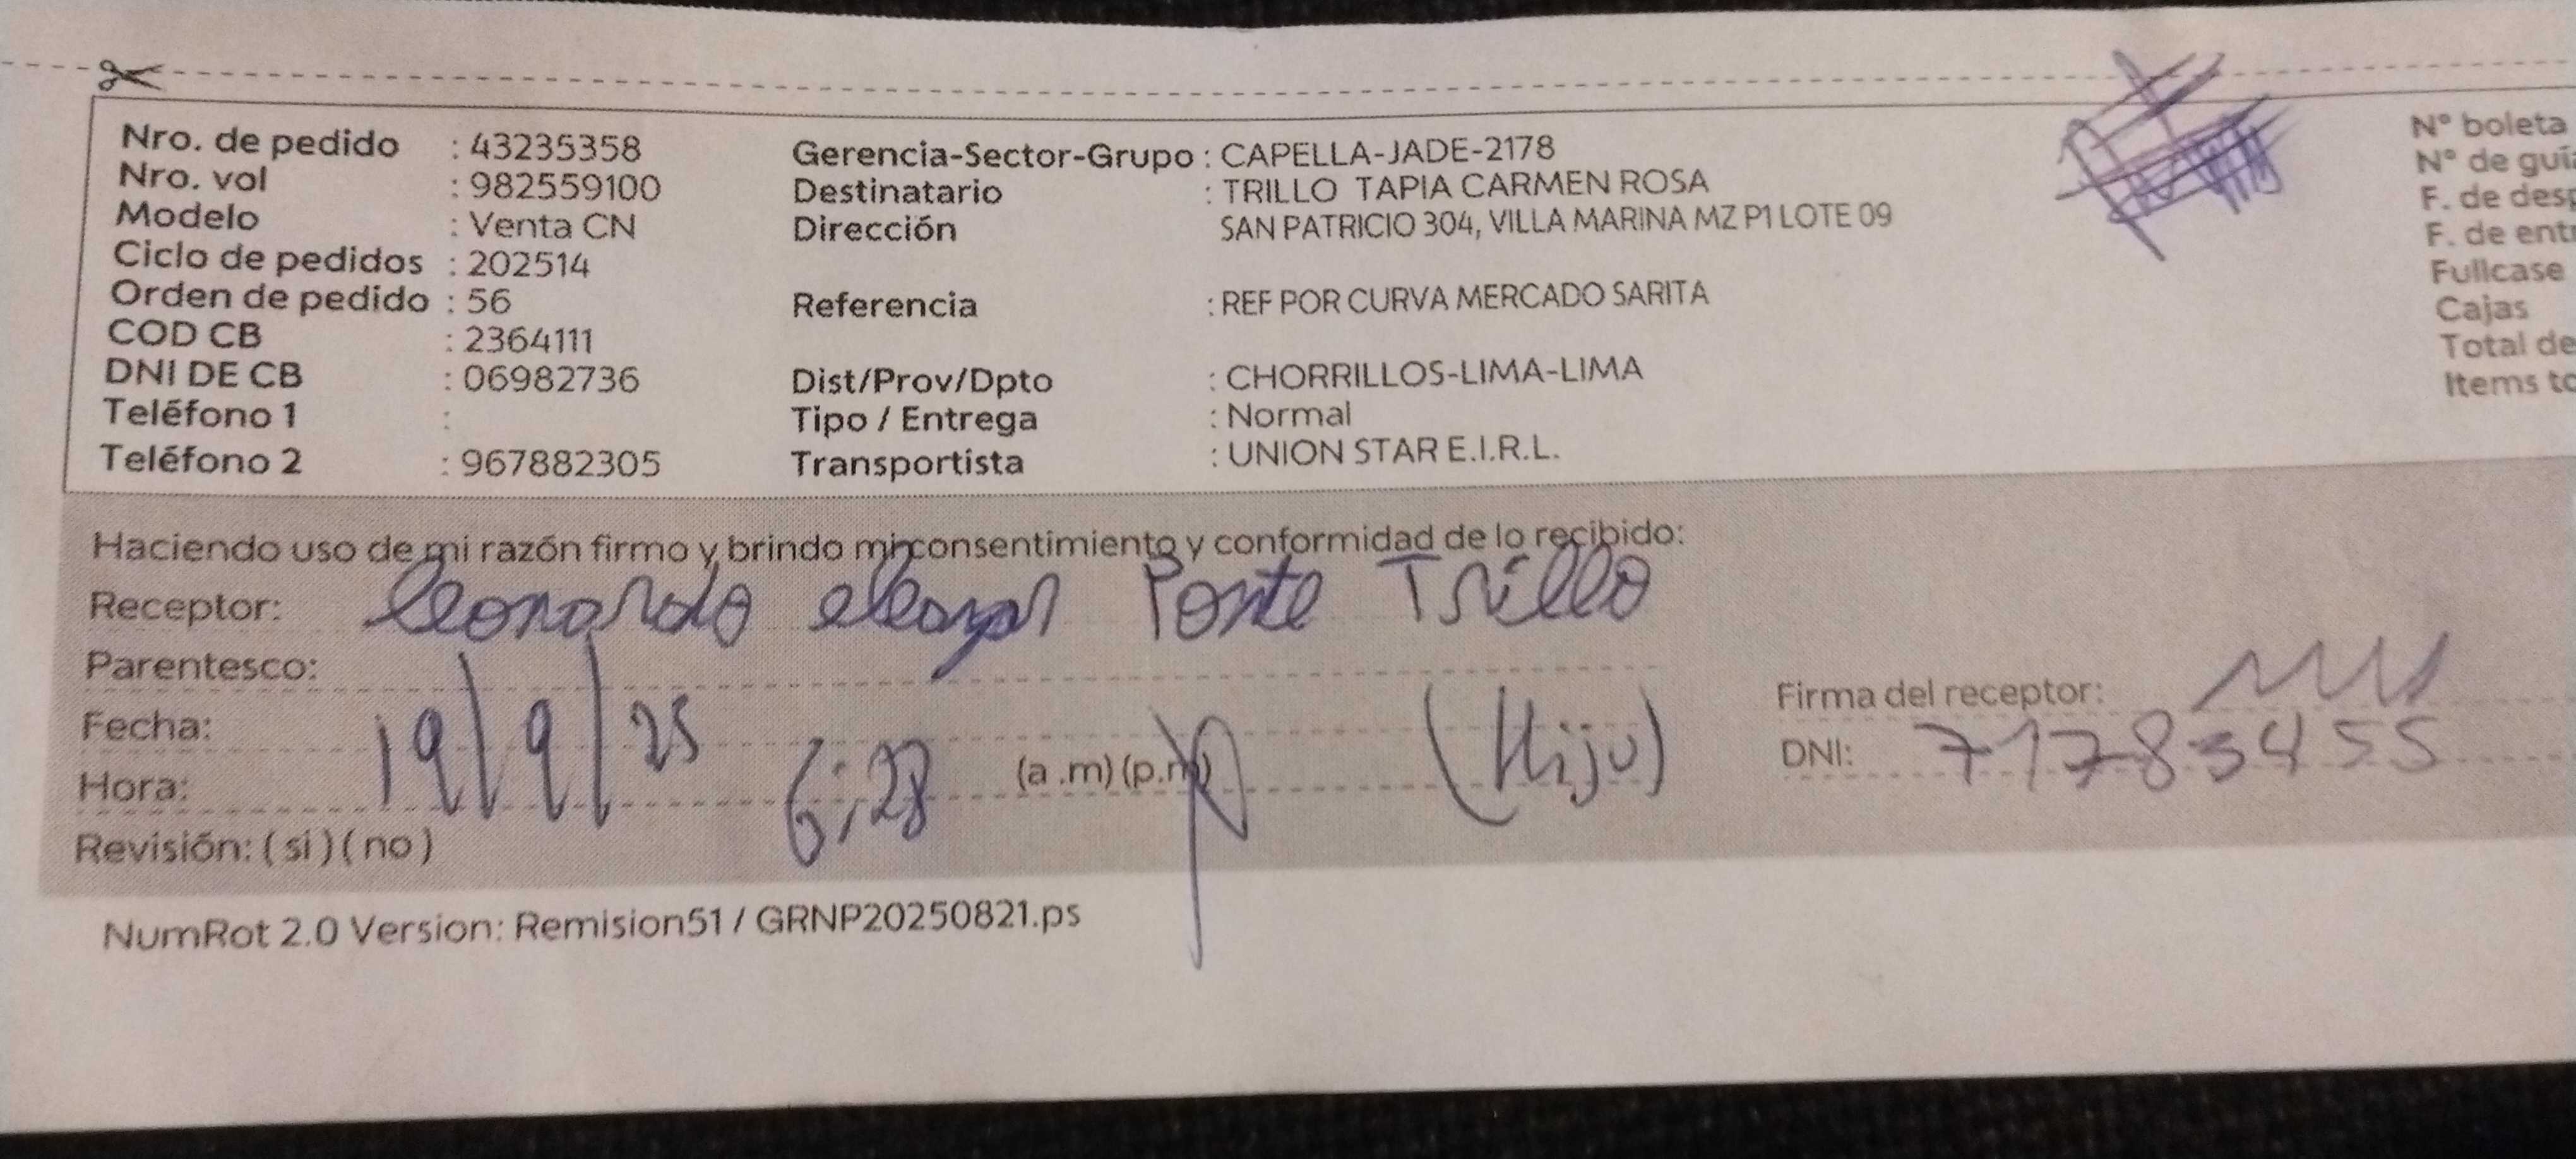 Nro. de pedido : 43235358
Nro. vol : 982559100
Modelo : Venta CN
Ciclo de pedidos : 202514
Orden de pedido : 56
COD CB : 2364111
DNI DE CB : 06982736
Teléfono 1 :
Teléfono 2 : 967882305
Gerencia-Sector-Grupo : CAPELLA-JADE-2178
Destinatario : TRILLO TAPIA CARMEN ROSA
Dirección SAN PATRICIO 304, VILLA MARINA MZ P1 LOTE 09
Referencia : REF POR CURVA MERCADO SARITA
Dist/Prov/Dpto : CHORRILLOS-LIMA-LIMA
Tipo / Entrega : Normal
Transportista : UNION STAR E.I.R.L.
N° boleta
N° de guía
F. de desp
F. de entr
Fullcase
Cajas
Total de
Items to
Haciendo uso de mi razón firmo y brindo mi consentimiento y conformidad de lo recibido:
Receptor: Leonardo Ponte Trillo
Parentesco:
Fecha: 19/9/25
Hora: 6:28 (a .m) (p.m) (Hijo)
Revisión: ( si ) ( no )
Firma del receptor:
DNI: 71783455
NumRot 2.0 Version: Remision51 / GRNP20250821.ps